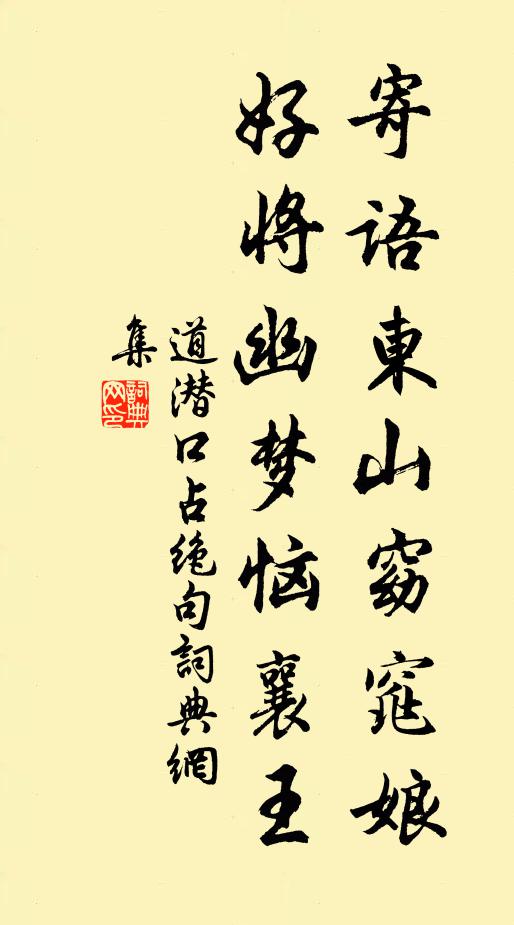 寄语東山窈窕娘
好将幽梦恼襄王
道潜口占绝句詞典網
集
詞典
网印